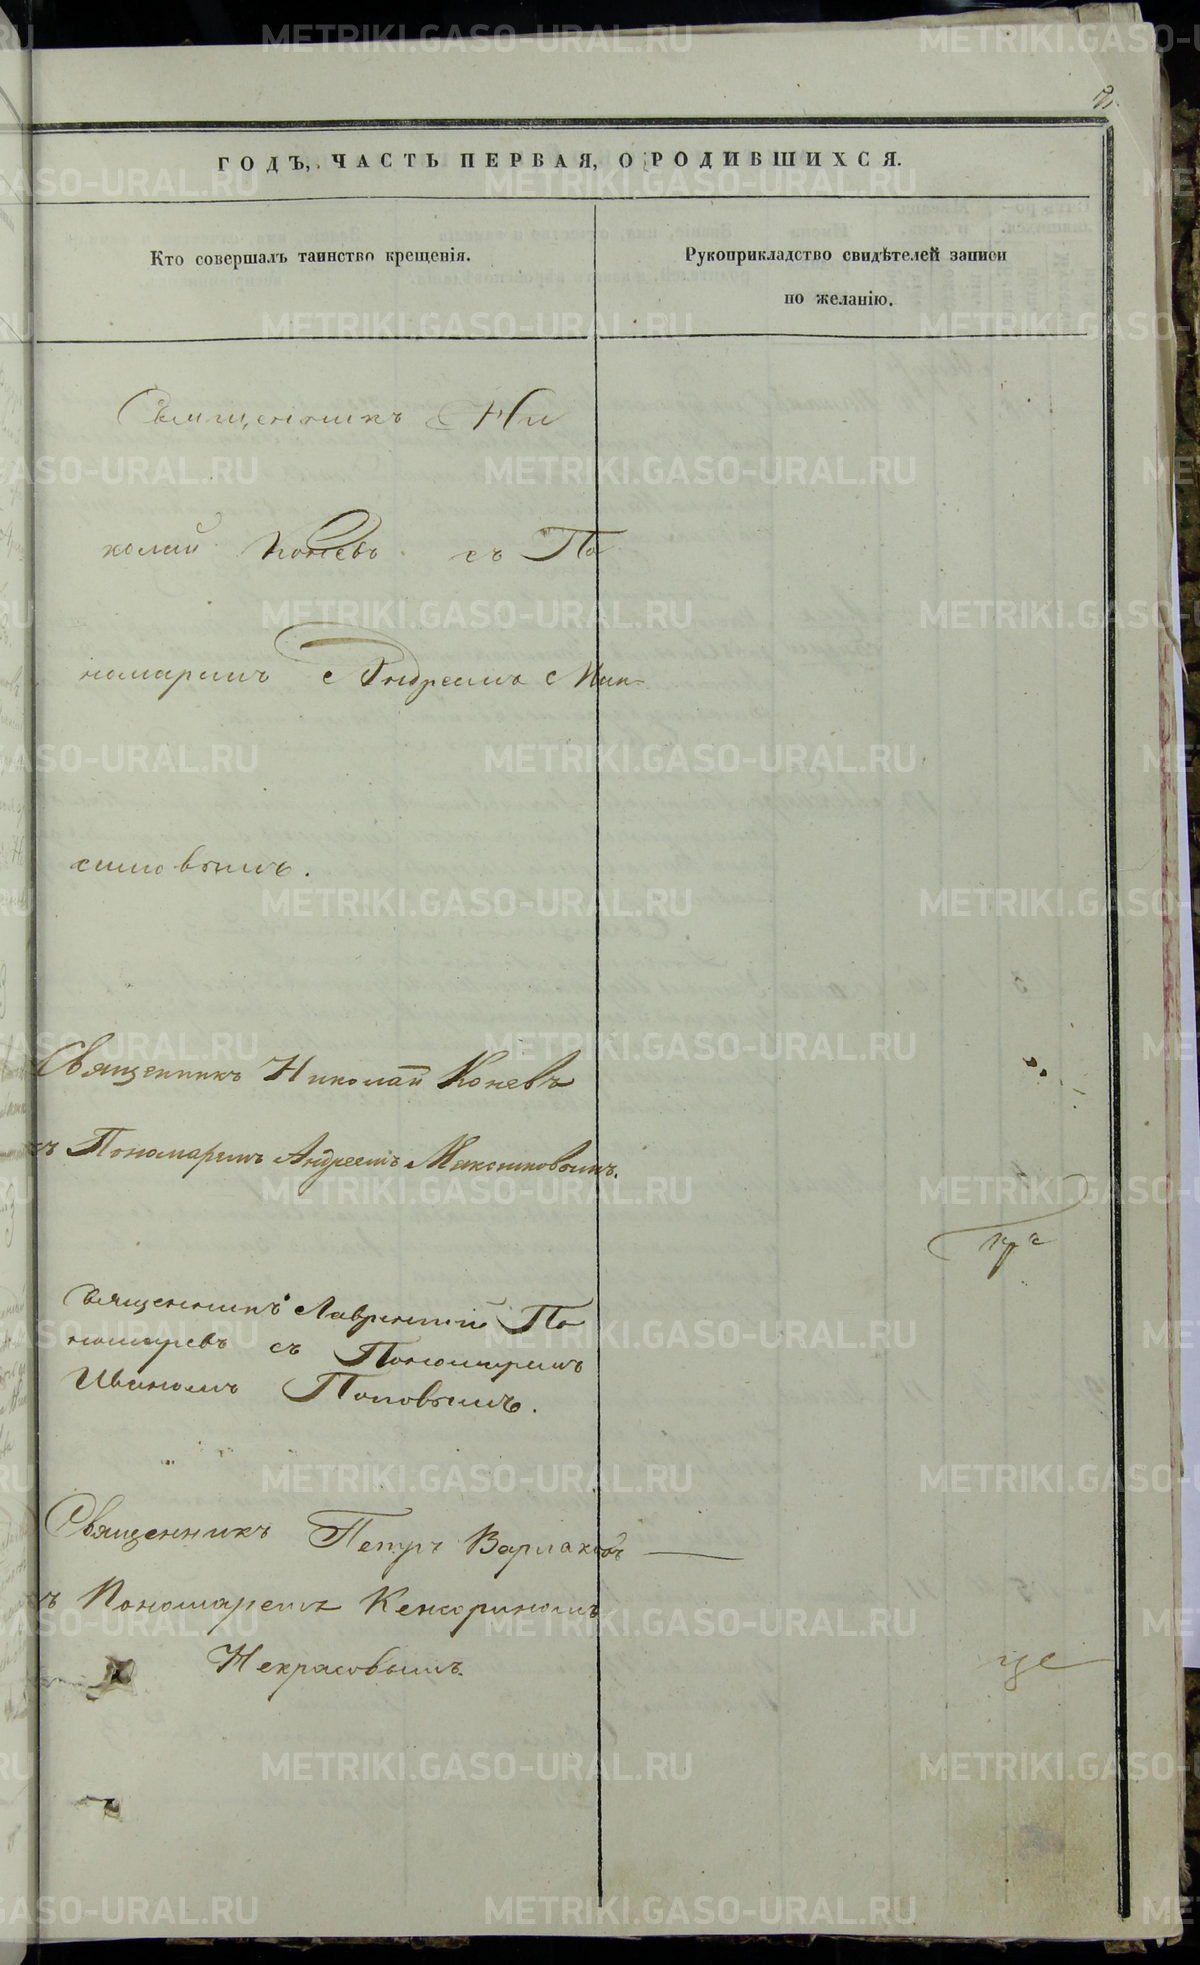 ГОДЪ, ЧАСТЬ ПЕРВАЯ, О РОДИВШИХСЯ.
Кто совершалъ таинство крещенія.
Рукоприкладство свидѣтелей записи
по желанію.
Священникъ Ни
колай Коневъ съ По
номаремъ Андреемъ Мак-
симовымъ.
Священникъ Николай Коневъ
съ Пономаремъ Андреемъ Максимовымъ.
Священникъ Лаврентій По
номаревъ съ Пономаремъ
Иваномъ Поповымъ.
Священникъ Петръ Варлаковъ
съ Пономаремъ Кенсориномъ
Некрасовымъ.
це
METRIKI.GASO-URAL.RU